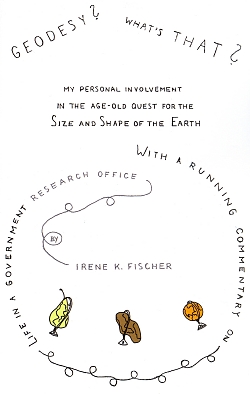 GEODESY? WHAT'S THAT?
MY PERSONAL INVOLVEMENT
IN THE AGE-OLD QUEST FOR THE
SIZE AND SHAPE OF THE EARTH
WITH A RUNNING COMMENTARY ON
LIFE IN A GOVERNMENT RESEARCH OFFICE
BY
IRENE K. FISCHER